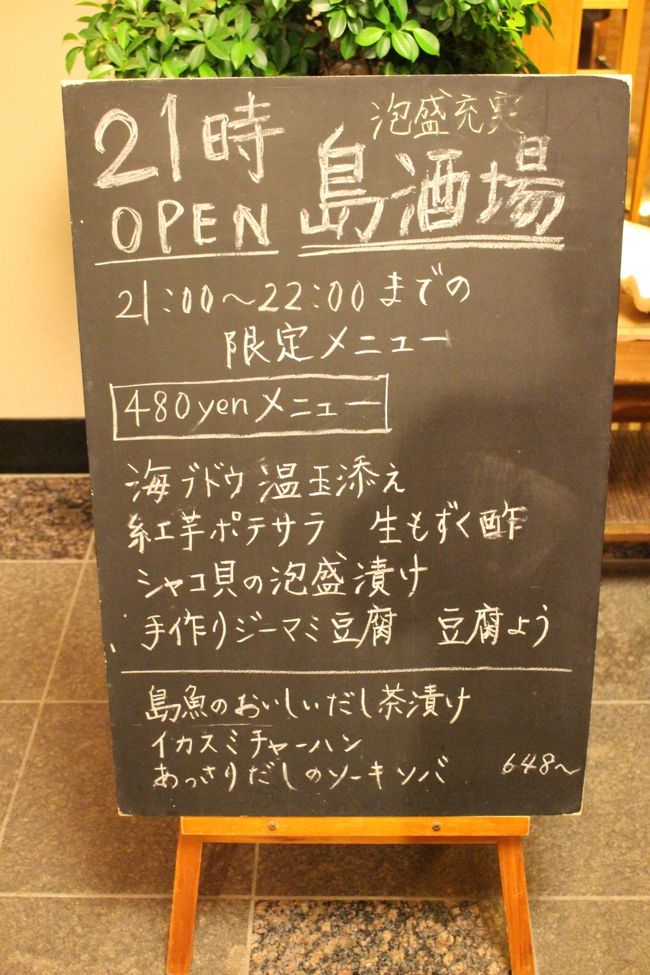 泡盛充実
21時 島酒場
OPEN
21:00～22:00までの
限定メニュー
480yenメニュー
海ブドウ温玉添え
紅芋ポテサラ 生もずく酢
シャコ貝の泡盛漬け
手作りジーマミ豆腐 豆腐よう
島魚のおいしいだし茶漬け
イカスミチャーハン
あっさりだしのソーキソバ 648～